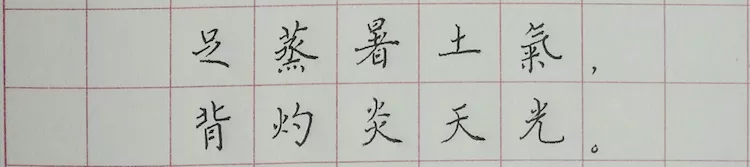 足蒸暑土氣，
背灼炎天光。